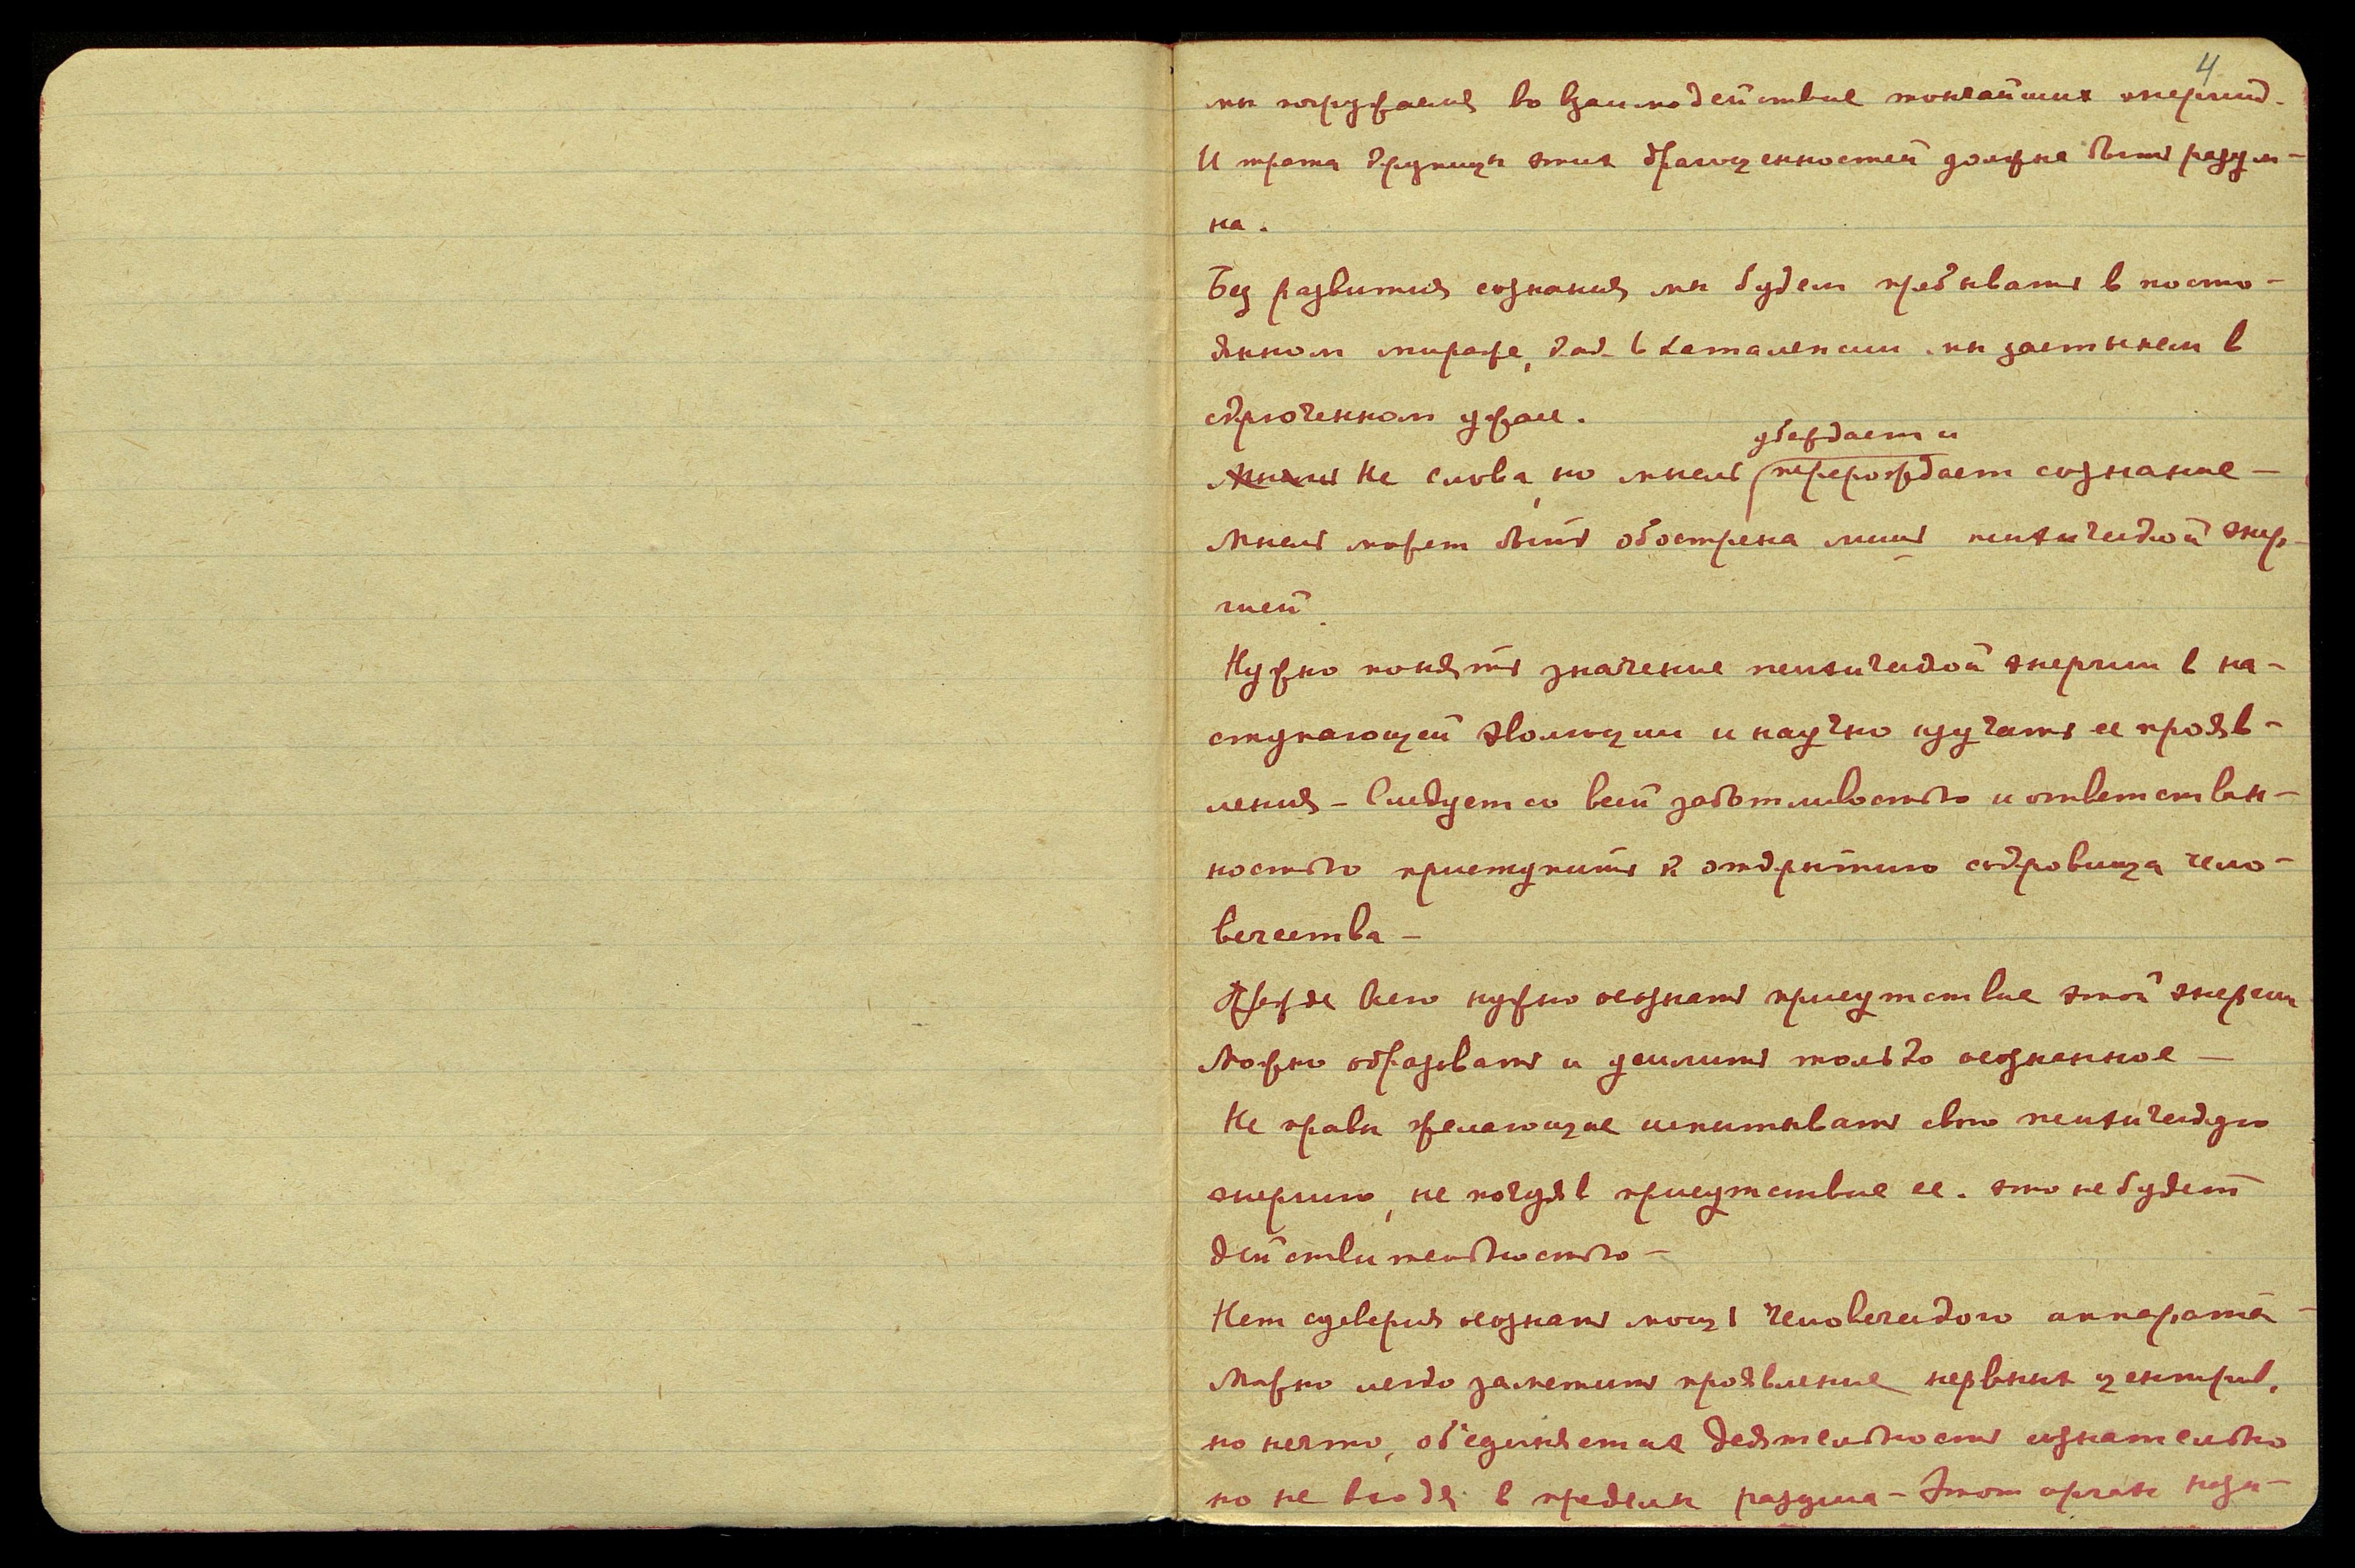 4
мы погружаемся во взаимодействие тончайших энергий.
И трата крупицы этих драгоценностей должна быть разум-
на.
Без развития сознания мы будем пребывать в посто-
янном мираже, как в каталепсии мы застынем в
скрюченном ужасе.
убеждает и
Мысль Не слова, но мысль перерождает сознание —
Мысль может быть обострена лишь психической энер-
гией.
Нужно понять значение психической энергии в на-
ступающей эволюции и научно изучать ее прояв-
ления — Следует со всей заботливостью и ответствен-
ностью приступить к открытию сокровища чело-
вечества —
Прежде всего нужно осознать присутствие этой энергии
Можно образовать и усилить только осознанное —
Не правы желающие испытывать свою психическую
энергию, не почуяв присутствие ее. это не будет
действительностью —
Нет суеверия осознать мощь человеческого аппарата —
Можно легко заметить проявление нервных центров,
но нечто, объединяет их деятельность сознательно
но не входя в пределы разума — Этот орган назы-